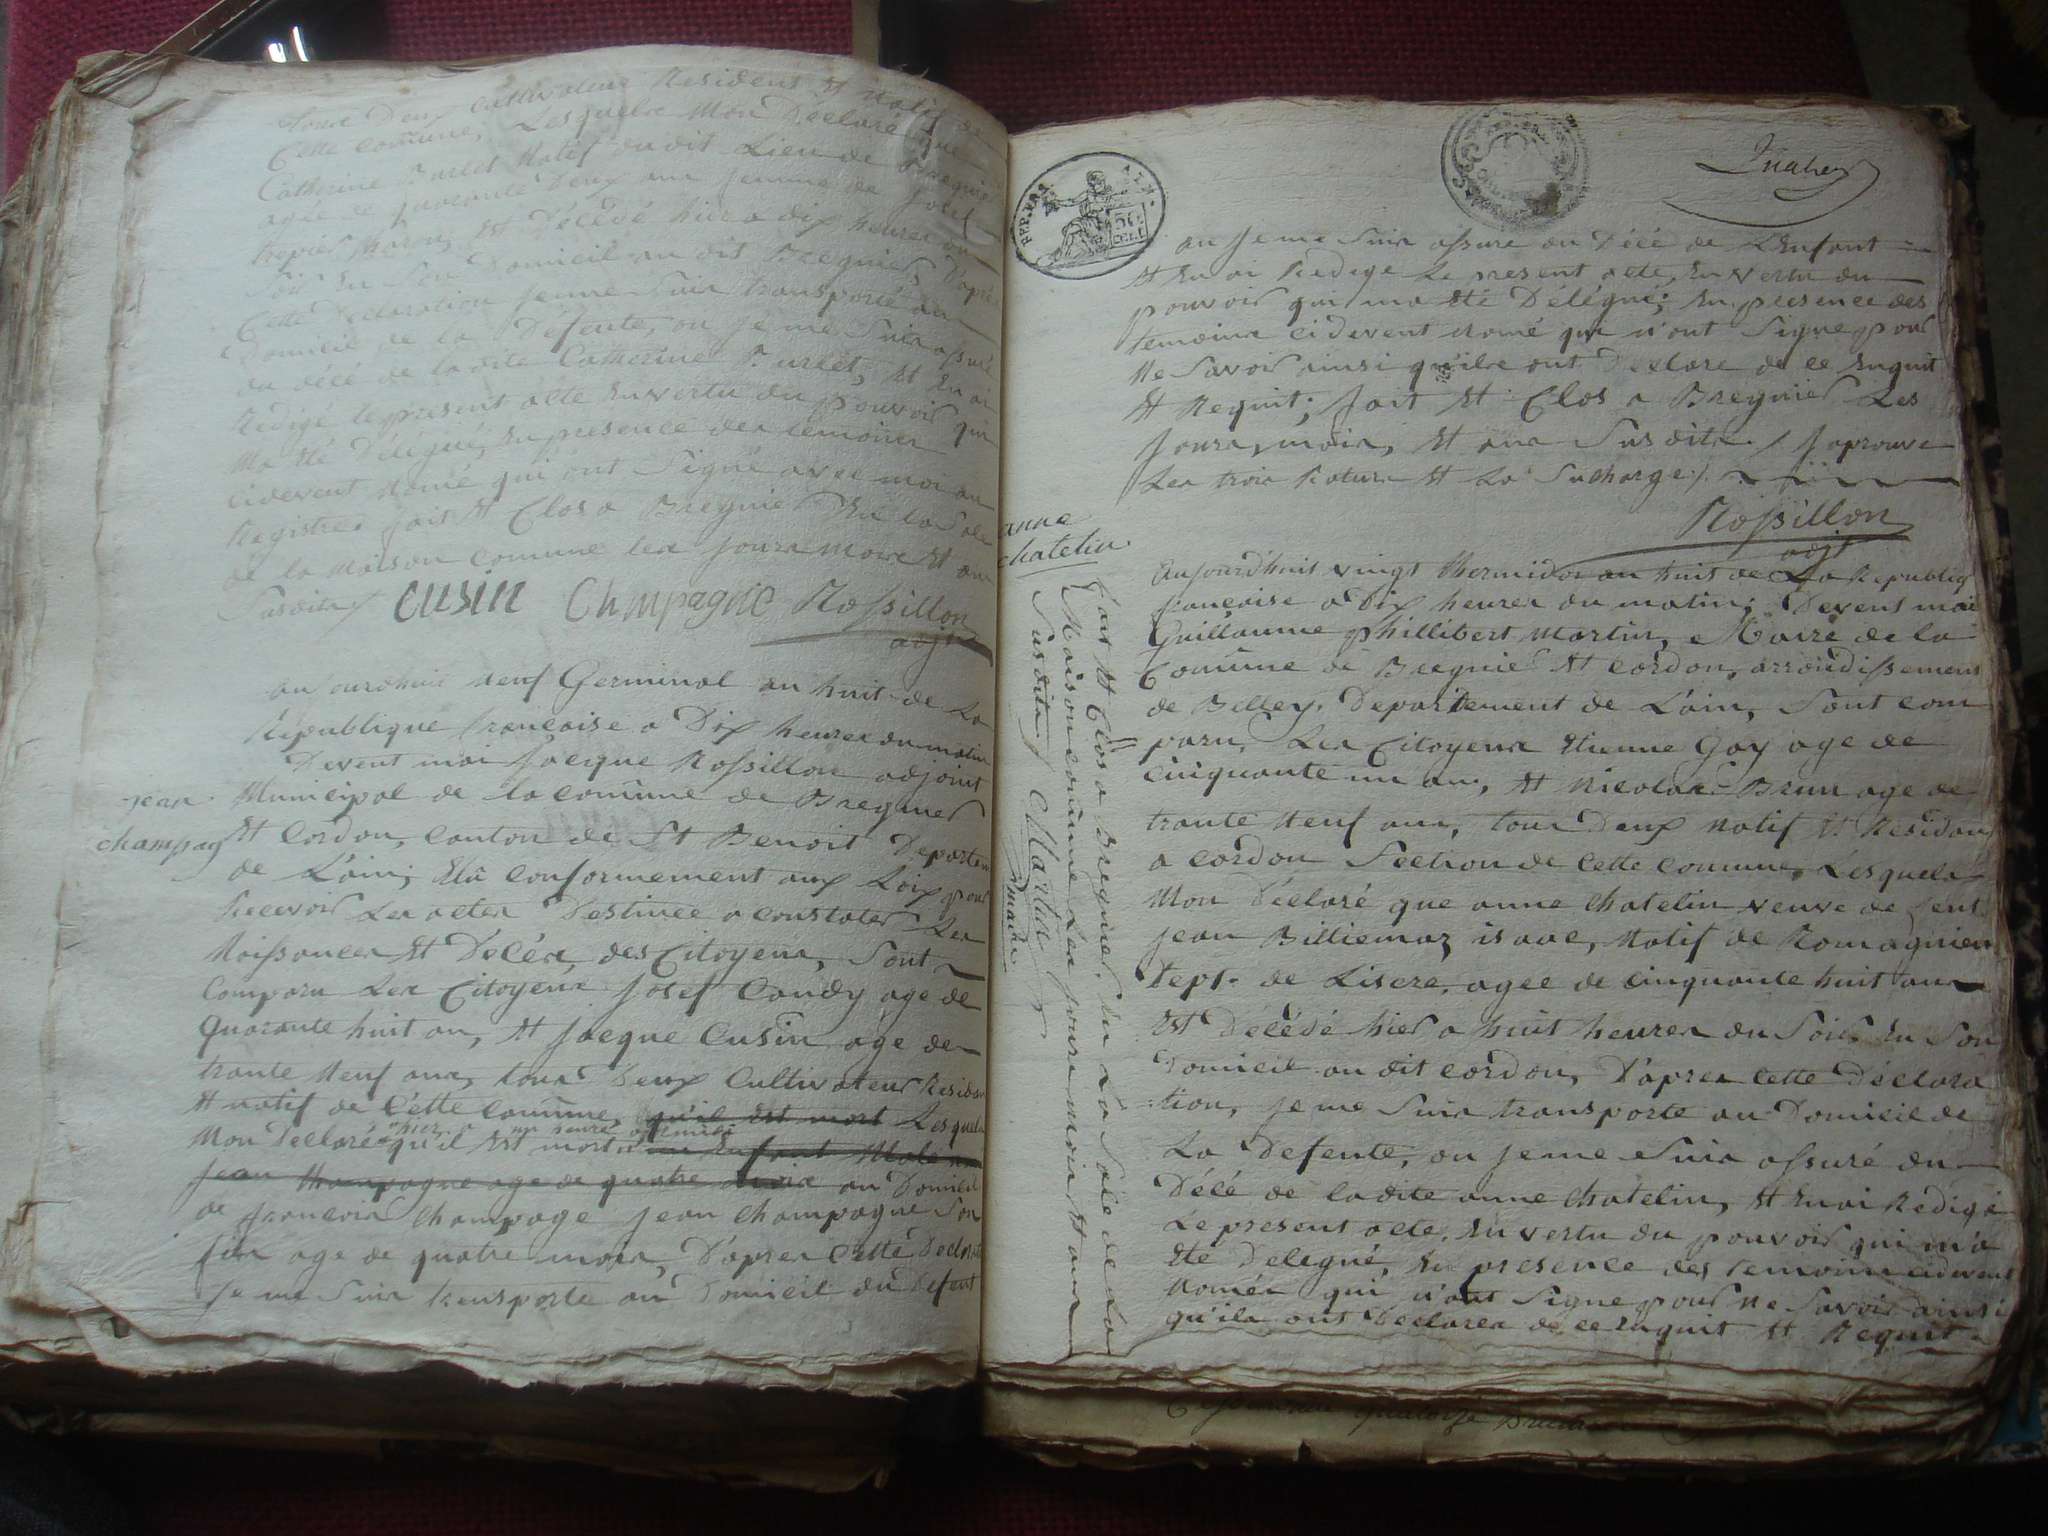 Tous Deux Cultivateur Residens Et Natif de
Cette comune, Lesquelre Mon Déclaré que
Catherine Purlet Natif du dit Lieu de Bregnier
agée de quarante Deux ans femme de
Est Décédé hier a dix heures du
Soir En Son Domicil au dit Bregnier, D'apres
Cette Declaration Jeme Suis transporté au
Domicil de la Défente, ou Je me Suis assuré
du décé de la dite Catherine Purlet, Et En ai
Redigé le present acte Envertu du pouvoir qui
Ma Eté Délégué, En presence des temoins
cidevent Nomé qui ont Signé avec moi au
Registre, fait Et Clos a Bregnier En la Sale
de la Maison Comune les Jours Mois Et an
Susdits /
CUSIN Chmpagne Rossillon
adjt
jean
champag
aujourdhuit neuf Germinal an huit de la
République française a Dix heures du matin
Devent moi Jacque Rossillon adjoint
Municipal de la comune de Bregnier
Et Cordon, Canton de St Benoit Departem
de L'ain, Elû conformement aux Loix pour
Recevoir Les actes Destinee a constater Les
Naissances Et Décés, des Citoyens, Sont
Comparu Les Citoyens Josef Candy age de
Quarante huit an, Et Jacque Cusin age de
trante Neuf ans, tous Deux Cultivateur Residan
Et natif de Cette Comune, qu'il Est mort Lesquels
hier a un heure apremidi
Mon Declaré qu'il Est mort, un Enfant Male
Jean Champagne age de quatre mois au Domicil
de francois Champage Jean Champagne Son
fils age de quatre mois, D'apres Cette Declarat
Je me Suis transporte au Domicil du Défent
REP. FRA.
50
CENT.
ou Jeme Suis assure du Décé de L'Enfant
Et En ai Redige Le present acte, En vertu du
pouvoir qui ma Eté Délégué; En presence des
temoins cidevent nomé qui n'ont Signe pour
Ne Savoir ainsi qu'ils ont Declare de ce Enquit
Et Requit; fait Et Clos a Bregnier Les
Jours, mois, Et ans Susdits / J'aprouve
Les trois Rature Et La Sucharge /
Rossillon
adjt
anne
chatelin
aujourdhuit vingt thermidor an huit de La Republiq
française a Dix heures du matin; Devent moi
Guillaume phillibert Martin, Maire de la
Comune de Bregnier Et Cordon, arrondissement
de Belley, Departement de L'ain, Sont com
paru, Les Citoyens Etienne Gay age de
cinquante un an, Et Nicolas Brun age de
trante Neuf ans, tous Deux Natif Et Residans
a Cordon Section de Cette Comune, Lesquels
Mon Déclaré que anne Chatelin veuve de feut
Jean Billiemaz isaac, Natif de Romagnieu
Dept. de Lisere, agee de cinquante huit ans
Est Décédé hier a huit heures du Soir, En Son
Domicil au dit Cordon, D'apres Cette Déclara
tion, Je me Suis transporte au Domicil de
La Defente, ou Jeme Suis assuré du
Décé de ladite anne Chatelin, Et En ai Redigé
Le present acte, En vertu du pouvoir qui m'a
Eté Delegué, En presence des temoins cidevent
Només qui n'ont Signe pour Ne Savoir ainsi
qu'ils ont Declares de ce Enquit Et Requit
fait Et Clos a Bregnier, En La Salle de La
Maison Comune Les Jours mois Et ans
Susdits /
Martin
maire